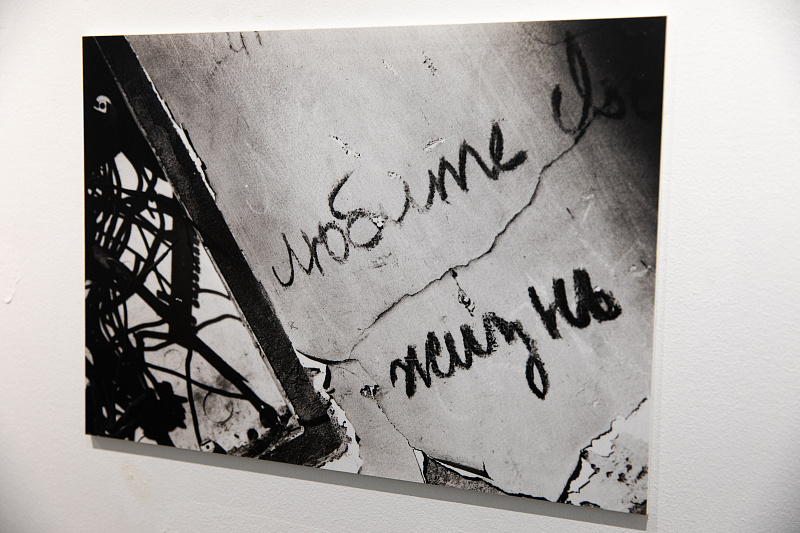 любите
жизнь